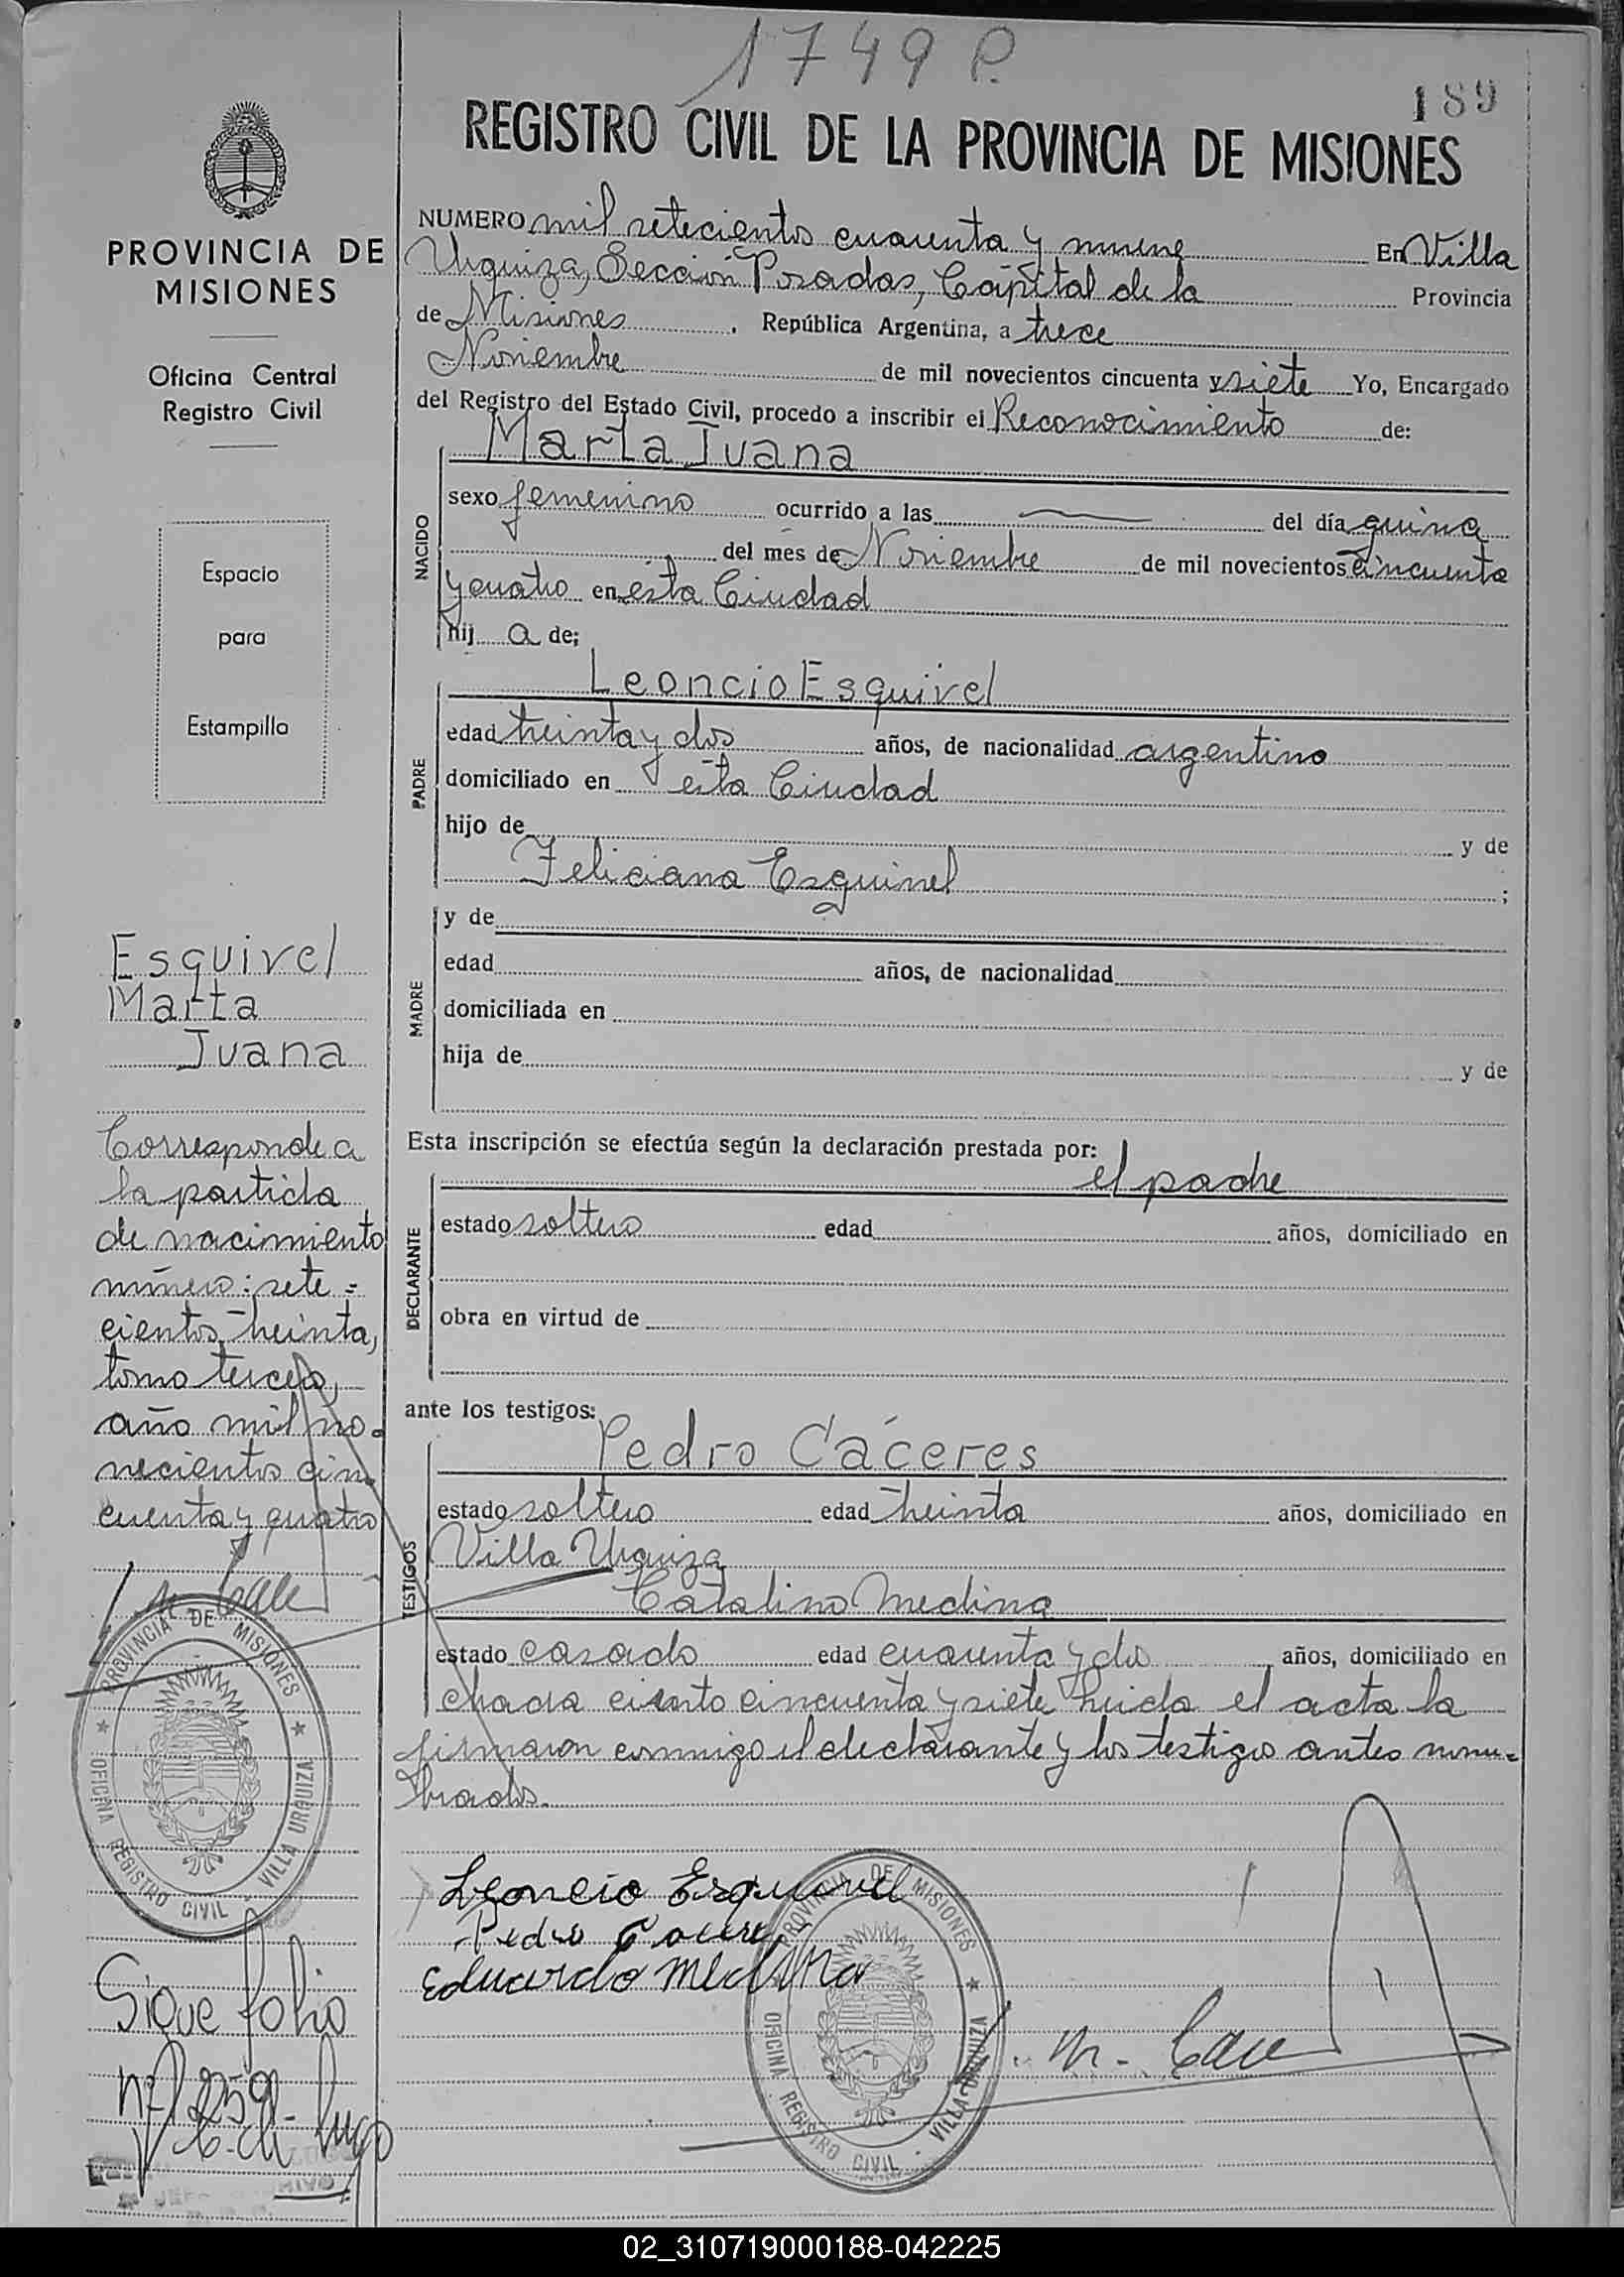 1749 P.
189
REGISTRO CIVIL DE LA PROVINCIA DE MISIONES
PROVINCIA DE
MISIONES
Oficina Central
Registro Civil
Espacio
para
Estampilla
NUMERO mil setecientos cuarenta y nueve En Villa
Urquiza, Sección Posadas, Capital de la Provincia
de Misiones, República Argentina, a trece
Noviembre de mil novecientos cincuenta y siete Yo, Encargado
del Registro del Estado Civil, procedo a inscribir el Reconocimiento de:
NACIDO
Marta Juana
sexo femenino ocurrido a las — del día quince
del mes de Noviembre de mil novecientos cincuenta
y cuatro en esta Ciudad
hij a de;
PADRE
Leoncio Esquivel
edad treinta y dos años, de nacionalidad argentino
domiciliado en esta Ciudad
hijo de y de
Feliciana Esquivel ;
MADRE
y de
edad años, de nacionalidad
domiciliada en
hija de y de
Esta inscripción se efectúa según la declaración prestada por:
el padre
DECLARANTE
estado soltero edad años, domiciliado en
obra en virtud de
ante los testigos:
TESTIGOS
Pedro Cáceres
estado soltero edad treinta años, domiciliado en
Villa Urquiza
Catalino Medina
estado casado edad cuarenta y dos años, domiciliado en
chacra ciento cincuenta y siete leida el acta la
firmaron conmigo el declarante y los testigos antes nom-
brados.
Leoncio Esquivel
Pedro Caceres
Eduardo Medina
PROVINCIA DE MISIONES
OFICINA REGISTRO CIVIL - VILLA URQUIZA
Esquivel
Marta
Juana
Corresponde a
la partida
de nacimiento
número: sete-
cientos treinta,
tomo tercero,
año mil no-
vecientos cin-
cuenta y quatro
PROVINCIA DE MISIONES
OFICINA REGISTRO CIVIL - VILLA URQUIZA
Sigue folio
nº 259-
02_310719000188-042225